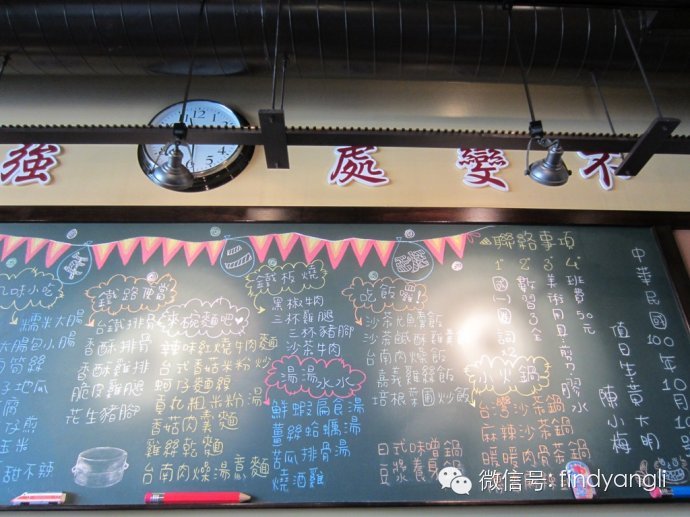 強
處
變
不
聯絡事項
1
2
3
4
數習
3
全
美術用具剪刀膠水
班費50元
中華民國100年10月10
值日生黃大明
陳小梅
糯米大腸
大腸包小腸
子地瓜
腐
玉米
甜不辣
鐵路便當
台鐵排骨
香酥排骨
香酥雞排
脆皮雞腿
花生豬腳
來碗麵吧
辣味紅燒牛肉麵
台式香菇米粉炒
蚵仔麵線
貢丸粗米粉湯
香菇肉羹麵
雞絲乾麵
台南肉燥湯意麵
鐵板燒
黑椒牛肉
三杯雞腿
三杯豬腳
沙茶牛肉
湯湯水水
鮮蝦扁食湯
薑絲蛤蠣湯
苦瓜排骨湯
燒酒雞
吃飯囉!
沙茶魷魚羹飯
沙茶鹹酥雞飯
台南肉燥飯
嘉義雞絲飯
培根菜圃炒飯
日式味噌鍋
豆漿
火鍋
台灣沙茶鍋
麻辣沙茶鍋
暖暖肉骨茶鍋
微信号: findyangli